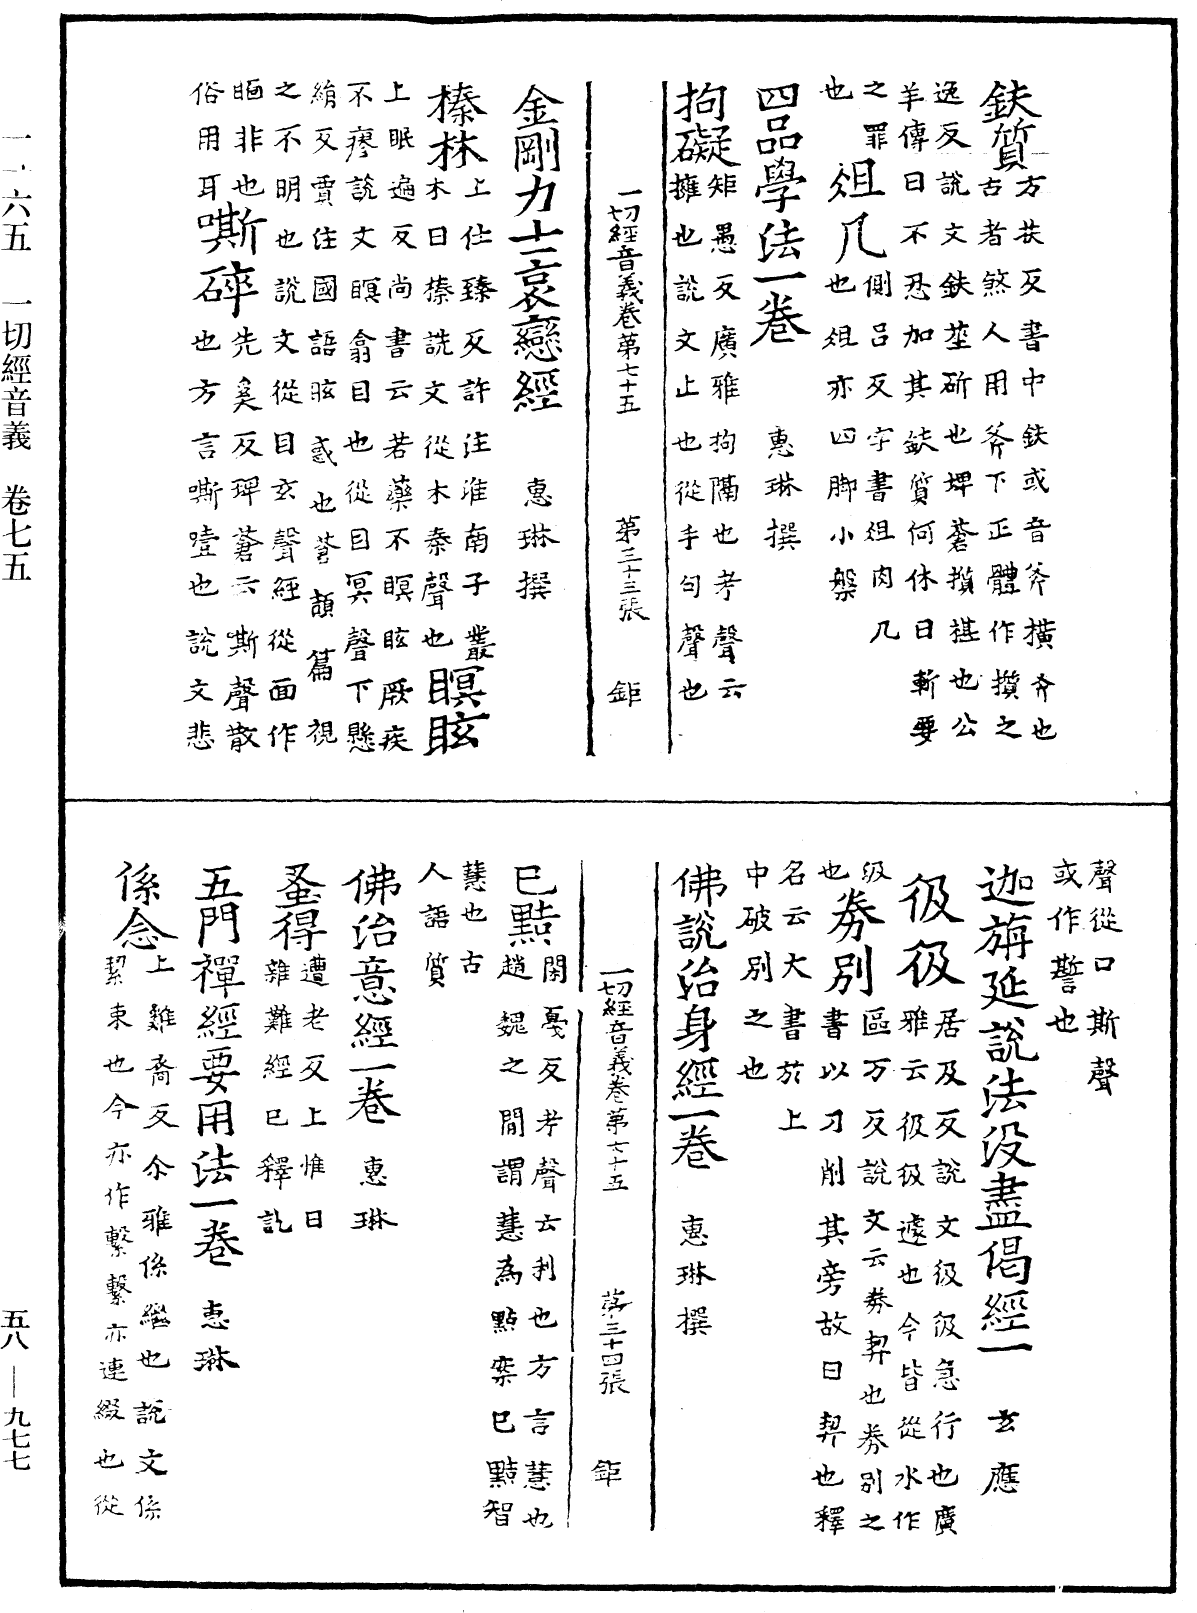 一一六五　一切經音義　卷七五
五八—九七七
鈇質方扶反書中鈇或音斧橫斧也
古者煞人用斧下正體作攢之
逸反說文鈇莝斫也埤蒼攢椹也公
羊傳曰不忍加其鈇質何休曰斬要
之罪俎几側呂反字書俎肉几
也　也俎亦四脚小槃
四品學法一卷　惠琳撰
拘礙矩愚反廣雅拘隔也考聲云
擁也說文止也從手句聲也
一切經音義卷第七十五　第三十三張　鉅
金剛力士哀戀經　惠琳撰
榛林上仕臻反許注淮南子叢
木曰榛說文從木秦聲也瞑眩
上眠遍反尚書云若藥不瞑眩厥疾
不瘳說文瞑翕目也從目冥聲下懸
絢反賈注國語眩惑也蒼頡篇視
之不明也說文從目玄聲經從面作
𥉻非也嘶碎先奚反埤蒼云嘶聲散
俗用耳　也方言嘶噎也說文悲
聲從口斯聲
或作誓也
迦旃延說法沒盡偈經一　玄應
伋伋居及反說文伋伋急行也廣
雅云伋伋遽也今皆從水作
級券別區万反說文云券契也券別之
也　書以刀削其旁故曰契也釋
名云大書於上
中破別之也
佛說治身經一卷　惠琳撰
一切經音義卷第七十五　第三十四張　鉅
已黠閑戛反考聲云利也方言慧也
趙魏之間謂慧為黠案已黠智
慧也古
人語質
佛治意經一卷　惠琳
蚤得遭老反上惟日
雜難經已釋訖
五門禪經要用法一卷　惠琳
係念上雞裔反尒雅係繼也說文係
絜束也今亦作繫繫亦連綴也從